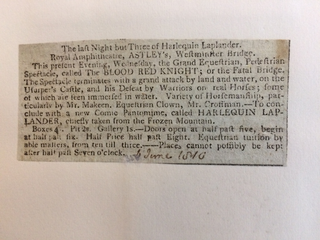 The last Night but Three of Harlequin Laplander.
Royal Amphitheatre, ASTLEY's, Westminster Bridge.
This present Evening, Wednesday, the Grand Equestrian, Pedestrian
Spectacle, called The BLOOD RED KNIGHT; or the Fatal Bridge.
The Spectacle terminates with a grand attack by land and water, on the
Usurper's Castle, and his Defeat by Warriors on real Horses; some
of which are seen immersed in water. Variety of Horsemanship, par-
ticularly by Mr. Makeen. Equestrian Clown, Mr. Crossman.—To con-
clude with a new Comic Pantomime, called HARLEQUIN LAP-
LANDER, chiefly taken from the Frozen Mountain.
Boxes 4s. Pit 2s. Gallery 1s.—Doors open at half past five, begin
at half past six. Half Price half past Eight. Equestrian tuition by
able masters, from ten till three.——Places cannot possibly be kept
after half past Seven o'clock. June 1810